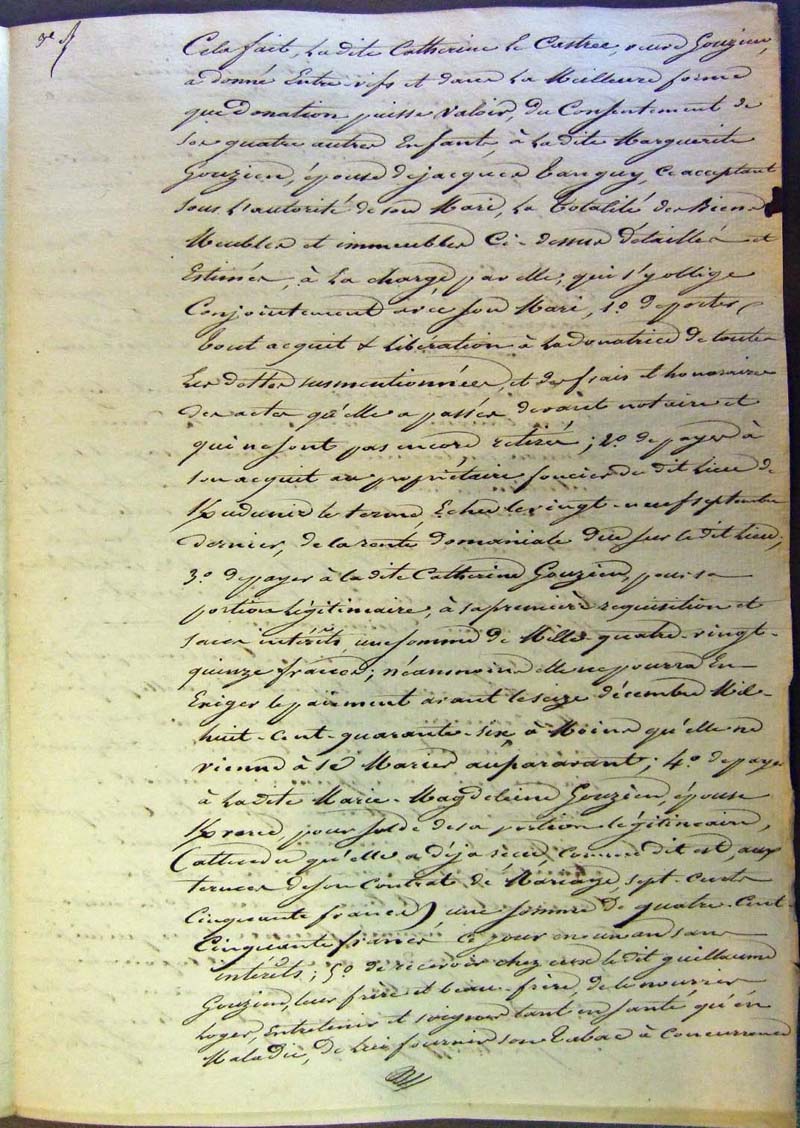 3e
Cela fait, Ladite Catherine le Castrec, veuve Gouzien,
a donné Entre-vifs et dans La Meilleure forme
que Donation puisse Valoir, du Consentement de
ses quatre autres Enfants, à Ladite Marguerite
Gouzien, épouse de jacques Tanguy, ce acceptant
sous L'autorité de son Mari, La Totalité des Biens
Meubles et immeubles Ci-dessus détaillés et
Estimés, à La charge par elle, qui s'y oblige
Conjointement avec son Mari, 1o. de porter
tout acquit & Libération à La donatrice de toutes
Les dettes susmentionnées, et des frais et honoraires
des actes qu'elle a passés devant notaire et
qui ne sont pas encore retirés; 2o. de payer à
son acquit au propriétaire foncier du dit Lieu de
le terme Echu le vingt-neuf septembre
dernier, de la rente domaniale due sur le dit Lieu;
3o. de payer à la dite Catherine Gouzien, pour sa
portion Légitimaire, à sa première réquisition et
sans intérêts, une somme de Mille-quatre-vingt-
quinze francs; néanmoins elle ne pourra En
Exiger le paiement avant le seize décembre Mil-
huit-cent-quarante-six, à Moins qu'elle ne
vienne à se Marier auparavant; 4o. de payer
à Ladite Marie-Magdeleine Gouzien, épouse
pour solde de sa portion légitimaire,
(attendu qu'elle a déja reçu, comme dit est, aux
termes de son Contrat de Mariage, sept-cents
Cinquante francs) une somme de quatre-cent-
Cinquante francs ce pour en un an sans
intérêts; 5o. de recevoir chez eux le dit guillaume
Gouzien, leur frère et beau-frère, de le nourrir
Loger, Entretenir et soigner tant en santé qu'en
Maladie, de Lui fournir son Tabac à Concurrence